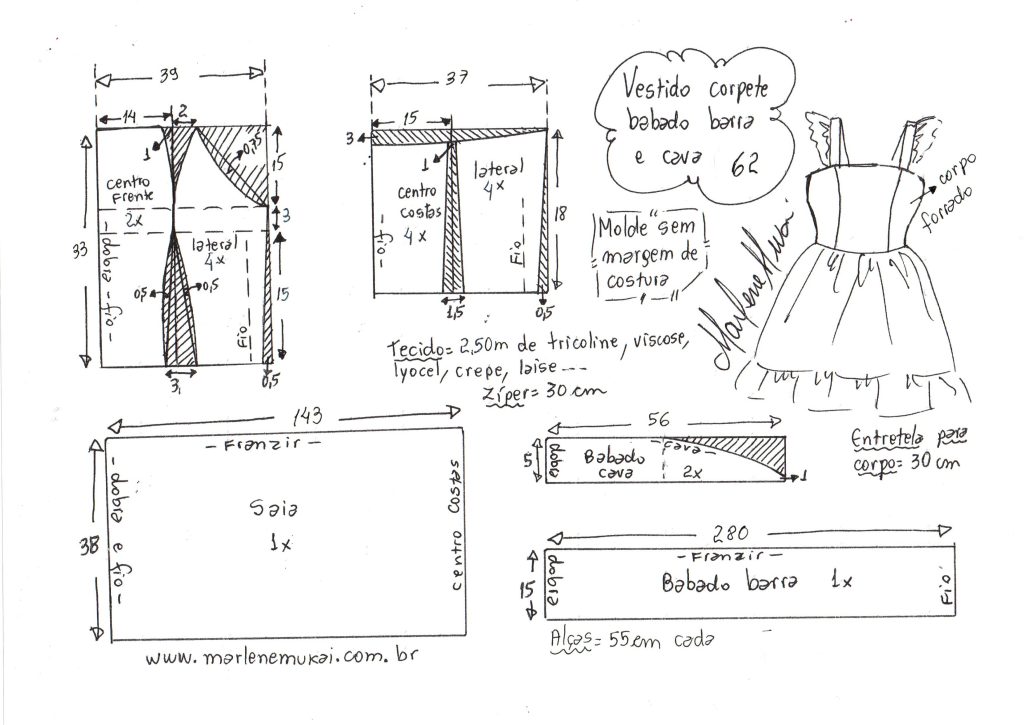 39
14
2
1
0,75
15
centro
Frente
2x
3
33
- dobra - fio -
lateral
4x
0,5
0,5
15
Fio
3
0,5
37
15
3
1
lateral
4x
centro
costas
4x
-fio-
Fio
18
1,5
0,5
Vestido corpete
babado barra
e cava 62
Molde sem
margem de
costura
Marlene Mukai.
corpo
forrado
Tecido= 2,50m de tricoline, viscose,
lyocel, crepe, laise ---
Zíper= 30 cm
143
- Franzir -
38
- dobra e fio -
Saia
1x
centro costas
www.marlenemukai.com.br
56
5
dobra
Babado
cava
cava
2x
1
Entretela para
corpo= 30 cm
280
- Franzir -
15
dobra
Babado barra 1x
Fio
Alças= 55cm cada